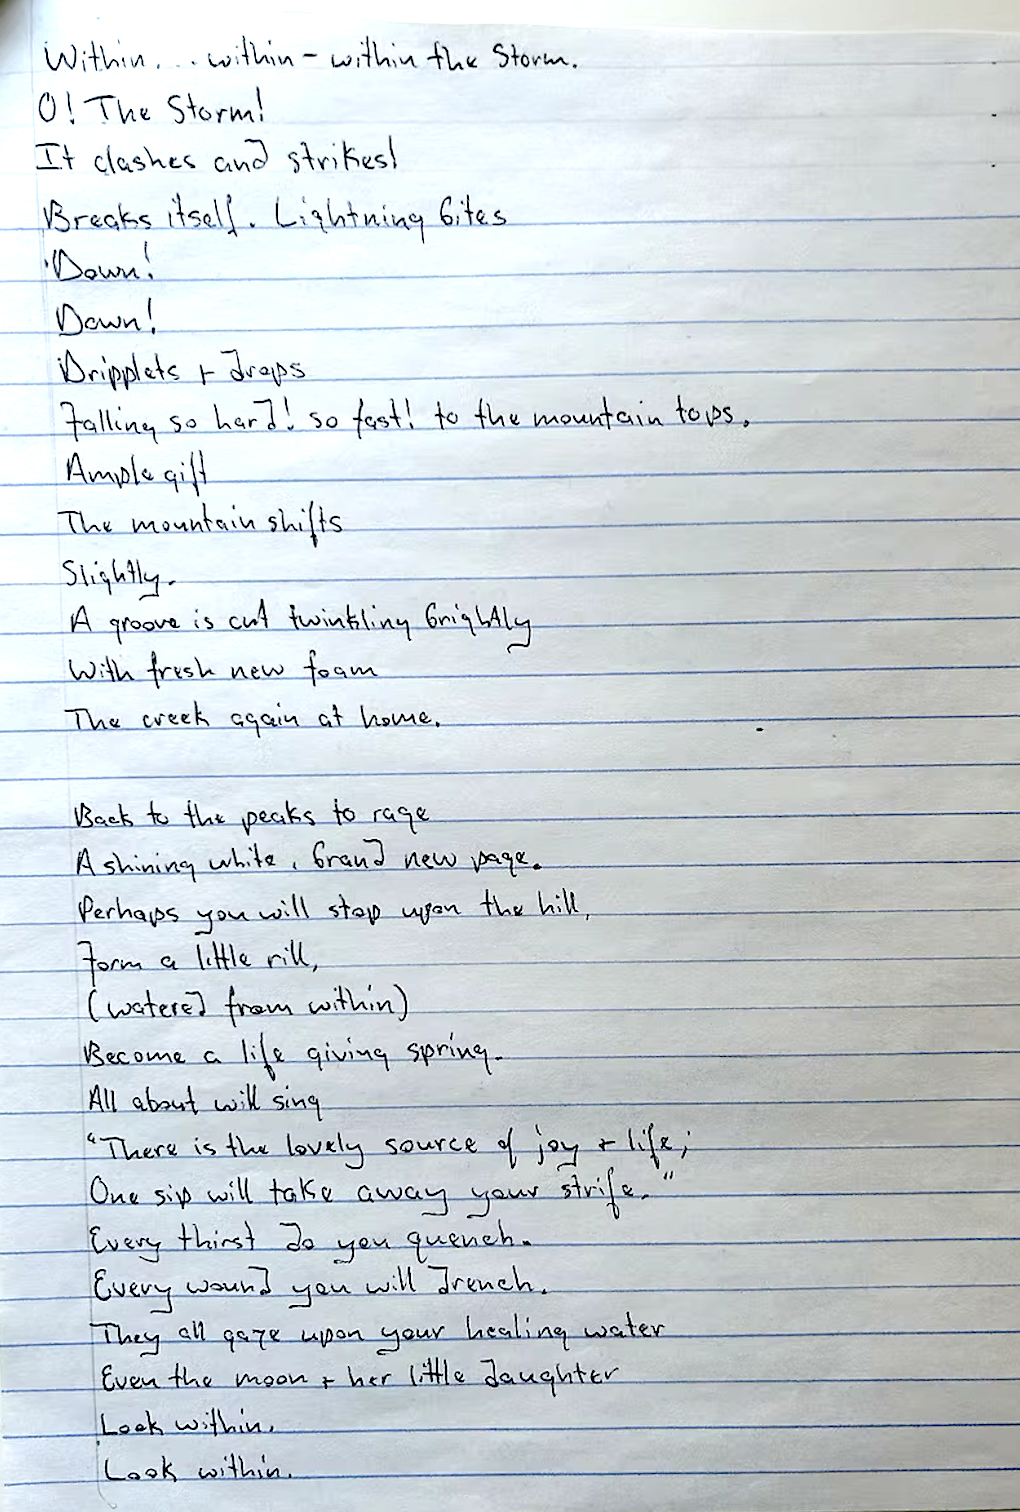 Within... within - within the Storm.
O! The Storm!
It clashes and strikes!
Breaks itself. Lightning bites
Down!
Down!
Dripplets + drops
Falling so hard! so fast! to the mountain tops.
Ample gift
The mountain shifts
Slightly.
A groove is cut twinkling brightly
With fresh new foam
The creek again at home.
Back to the peaks to rage
A shining white, brand new page.
Perhaps you will stop upon the hill,
Form a little rill,
(watered from within)
Become a life giving spring.
All about will sing
"There is the lovely source of joy + life;
One sip will take away your strife."
Every thirst do you quench.
Every wound you will drench.
They all gaze upon your healing water
Even the moon + her little daughter
Look within.
Look within.